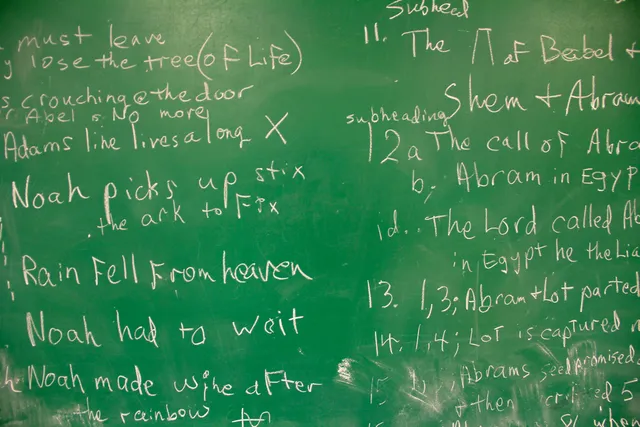 must leave
lose the tree (of Life)
crouching @ the door
Abel is No more
Adams line lives along X
Noah picks up stix
the ark to Fix
Rain Fell From heaven
Noah had to wait
Noah made wine after
the rainbow
Subhead
11. The Π of Babel +
Shem + Abram
subheading
12a The call of Abra
b. Abram in Egyp
id.. The Lord called Ab
in Egypt he the Lia
13. 1,3; Abram + Lot parted
14. 1,4; Lot is captured
15 Abrams seed promised
+ then 5
when